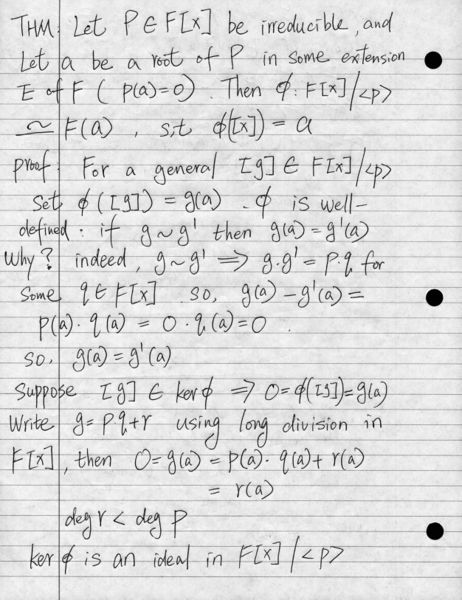 THM: Let P ∈ F[x] be irreducible, and
Let a be a root of P in some extension
E of F ( p(a) = 0) . Then ϕ: F[x]/<p>
≃ F(a) , s,t ϕ([x]) = a
proof: For a general [g] ∈ F[x]/<p>
set ϕ([g]) = g(a) . ϕ is well-
defined: if g ~ g' then g(a) = g'(a)
Why? indeed, g ~ g' ⟹ g-g' = p·q for
some q ∈ F[x] so, g(a) - g'(a) =
p(a) · q(a) = 0 · q(a) = 0 .
so, g(a) = g'(a)
Suppose [g] ∈ ker ϕ ⟹ 0 = ϕ([g]) = g(a)
Write g = p·q + r using long division in
F[x], then 0 = g(a) = p(a) · q(a) + r(a)
= r(a)
deg r < deg p
ker ϕ is an ideal in F[x]/<p>